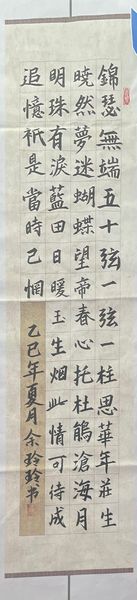 錦瑟無端五十弦一弦一柱思華年莊生
曉然夢迷蝴蝶望帝春心托杜鵑滄海月
明珠有淚藍田日暖玉生烟此情可待成
追憶衹是當時已惘
乙巳年夏月余玲玲书